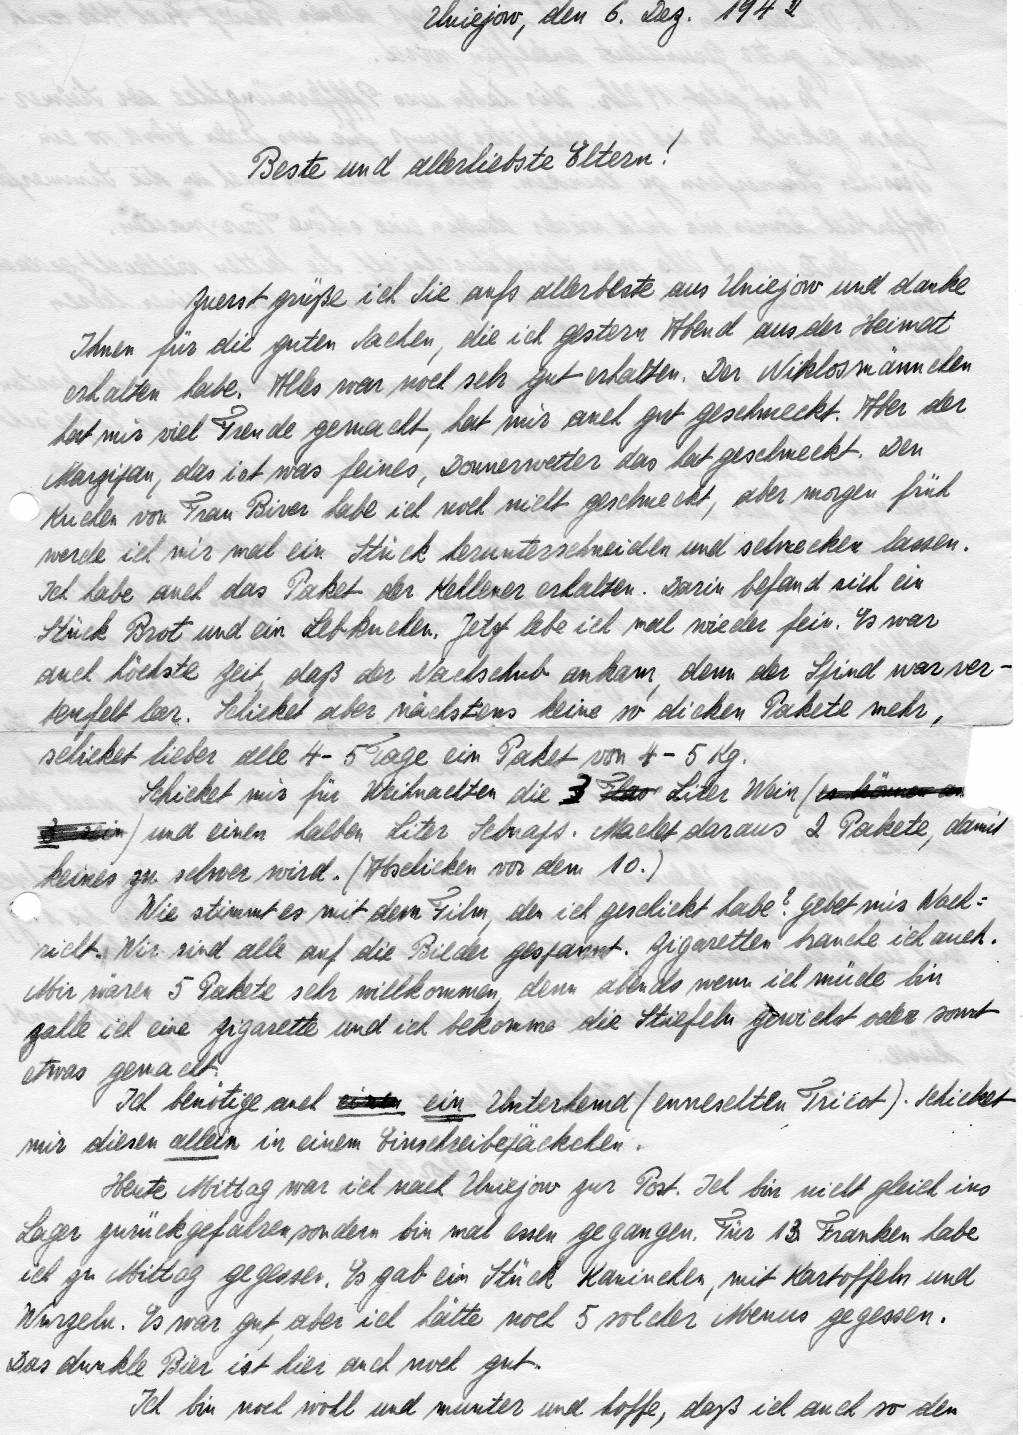 Uniejow, den 6. Dez. 1942
Beste und allerliebste Eltern!
Zuerst grüße ich Sie aufs allerbeste aus Uniejow und danke
Ihnen für die guten Sachen, die ich gestern Abend aus der Heimat
erhalten habe. Alles war noch sehr gut erhalten. Der Niklosmännchen
hat mir viel Freude gemacht, hat mir auch gut geschmeckt. Aber der
Margipan, das ist was feines, Donnerwetter das hat geschmeckt. Den
Kuchen von Frau Biver habe ich noch nicht geschmeckt, aber morgen früh
werde ich mir mal ein Stück herunterschneiden und schmecken lassen.
Ich habe auch das Paket der Kehlener erhalten. Darin befand sich ein
Stück Brot und ein Lebkuchen. Jetzt lebe ich mal wieder fein. Es war
auch höchste Zeit, daß der Nachschub ankam, denn der Spind war ver-
teufelt leer. Schicket aber nächstens keine so dicken Pakete mehr,
schicket lieber alle 4-5 Tage ein Paket von 4-5 Kg.
Schicket mir für Weihnachten die 3 Liter Wein (es können an
3 sein) und einen halben Liter Schnaps. Machet daraus 2 Pakete, damit
keines zu schwer wird. (Abschicken vor dem 10.)
Wie stimmt es mit dem Film, den ich geschickt habe? Gebet mir Nach=
richt. Wir sind alle auf die Bilder gespannt. Zigaretten brauche ich auch.
Mir wären 5 Pakete sehr willkommen, denn abends wenn ich müde bin
zahle ich eine Zigarette und ich bekomme die Stiefeln gewichst oder sonst
etwas gemacht.
Ich benötige auch einen ein Unterhemd (enneschten Tricot). Schicket
mir diesen allein in einem Einschreibepäckchen.
Heute Mittag war ich nach Uniejow zur Post. Ich bin nicht gleich ins
Lager zurückgefahren, sondern bin mal essen gegangen. Für 13 Franken habe
ich zu Mittag gegessen. Es gab ein Stück Kaninchen, mit Kartoffeln und
Würzeln. Es war gut, aber ich hätte noch 5 solcher Menus gegessen.
Das dunkle Bier ist hier auch noch gut.
Ich bin noch wohl und munter und hoffe, daß ich auch so den